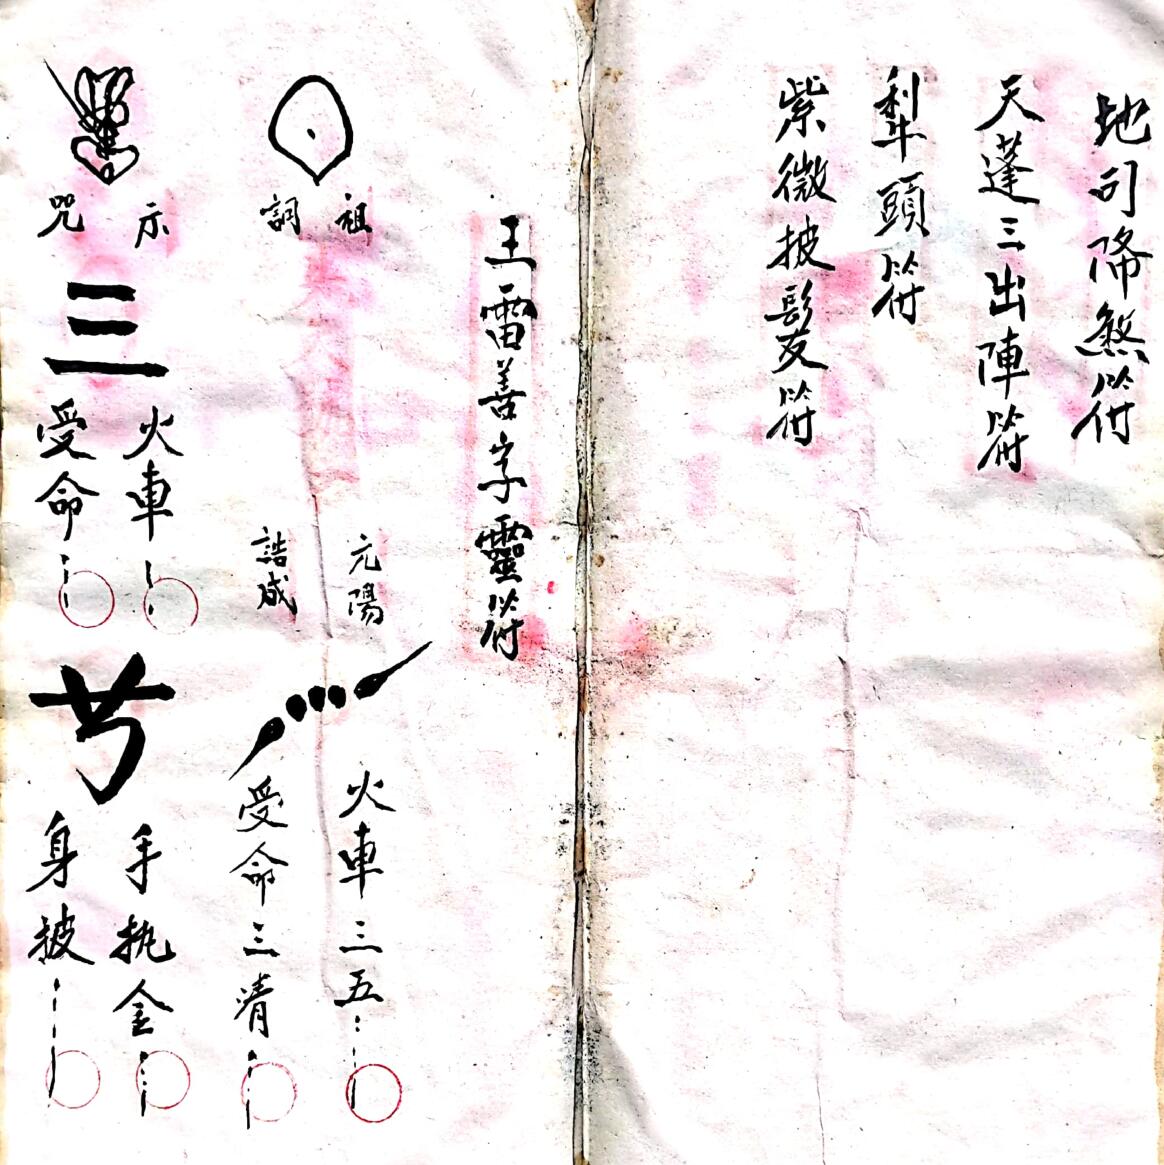 地司降煞符
天蓬三出陣符
犁頭符
紫微披髮符
王雷善字靈符
祖
詞
元陽
誥咸
火車三五
受命三清
示
咒
三
火車
受命
手执金
身披